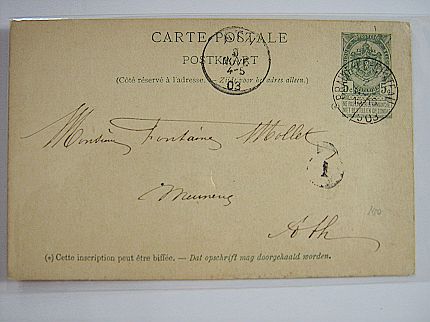 CARTE POSTALE
POSTKAART
(Côté réservé à l'adresse. — Zijde voor het adres alleen.)
NOV.
4-5
03
5 5
1903
Monsieur Fontaine Mollet
1
Ath
(*) Cette inscription peut être biffée. — Dat opschrift mag doorgehaald worden.